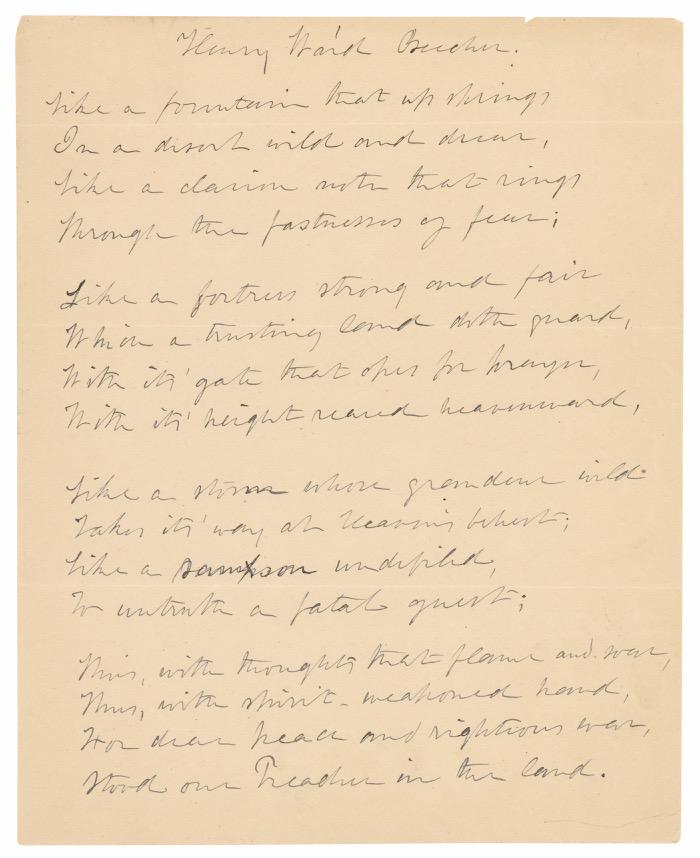 Henry Ward Beecher.
Like a fountain that up springs
In a desert wild and drear,
Like a clarion note that rings
Through the fastnesses of fear;
Like a fortress strong and fair
Which a trusting land doth guard,
With its' gate that opes for prayer,
With its' height reared heavenward,
Like a storm whose grandeur wild
Takes its' way at Heaven's behest;
Like a Sampson undefiled,
To untruth a fatal guest;
Thus, with thoughts that flame and soar,
Thus, with spirit-weaponed hand,
For dear peace and rightious war,
Stood our Preacher in the land.